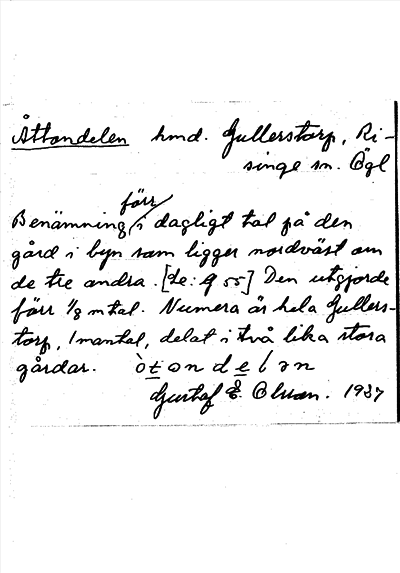 Åttondelen hmd. Gullerstorp, Ri-
singe sn. Ögl
förr
Benämning i dagligt tal på den
gård i byn som ligger nordväst om
de tre andra. [de: 9 55] Den utgjorde
förr 1/8 mtal. Numera är hela Gullers-
torp, 1 mantal, delat i två lika stora
gårdar. òtondelən
Gustaf E. Olsson. 1937